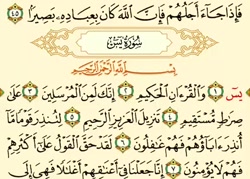 فَإِذَا جَآءَ أَجَلُهُمْ فَإِنَّ ٱللَّهَ كَانَ بِعِبَادِهِۦ بَصِيرًۢا ٤٥
سُورَةُ يسٓ
بِسْمِ ٱللَّهِ ٱلرَّحْمَٰنِ ٱلرَّحِيمِ
يسٓ ١ وَٱلْقُرْءَانِ ٱلْحَكِيمِ ٢ إِنَّكَ لَمِنَ ٱلْمُرْسَلِينَ ٣ عَلَىٰ
صِرَٰطٍ مُّسْتَقِيمٍ ٤ تَنزِيلَ ٱلْعَزِيزِ ٱلرَّحِيمِ ٥ لِتُنذِرَ قَوْمًا مَّآ
أُنذِرَ ءَابَآؤُهُمْ فَهُمْ غَٰفِلُونَ ٦ لَقَدْ حَقَّ ٱلْقَوْلُ عَلَىٰٓ أَكْثَرِهِمْ
فَهُمْ لَا يُؤْمِنُونَ ٧ إِنَّا جَعَلْنَا فِىٓ أَعْنَٰقِهِمْ أَغْلَٰلًا فَهِىَ إِلَى